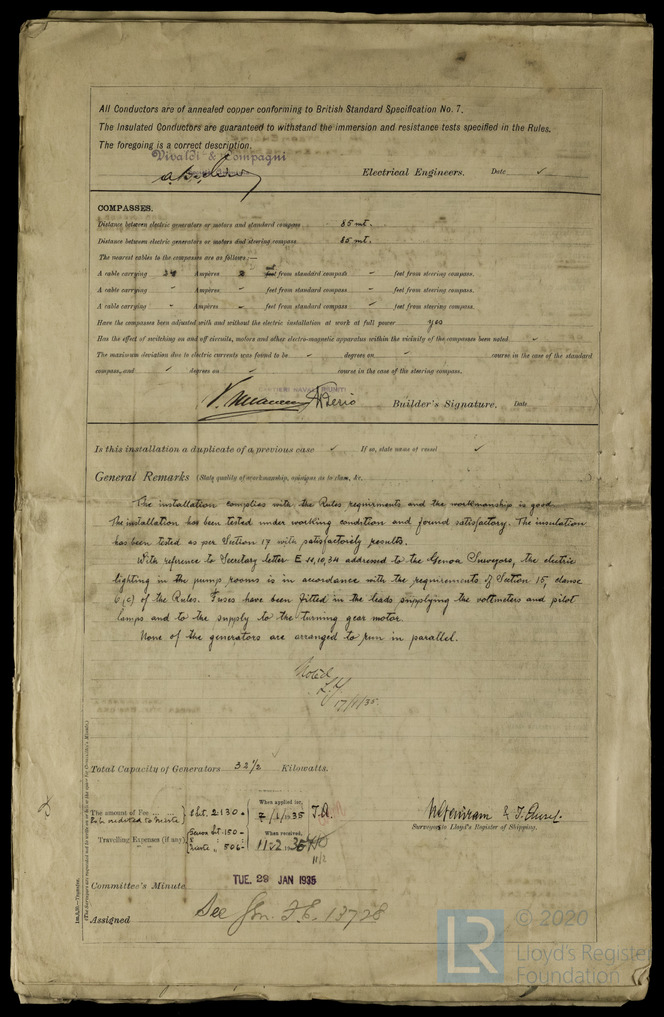 All Conductors are of annealed copper conforming to British Standard Specification No. 7.
The Insulated Conductors are guaranteed to withstand the immersion and resistance tests specified in the Rules.
The foregoing is a correct description.
Vivaldi & Compagni
Electrical Engineers. Date ✓
COMPASSES.
Distance between electric generators or motors and standard compass 85 mt.
Distance between electric generators or motors and steering compass 85 mt.
The nearest cables to the compasses are as follows:—
A cable carrying Ampères 2 feet from standard compass feet from steering compass.
A cable carrying Ampères feet from standard compass feet from steering compass.
A cable carrying Ampères feet from standard compass feet from steering compass.
Have the compasses been adjusted with and without the electric installation at work at full power yes
Has the effect of switching on and off circuits, motors and other electro-magnetic apparatus within the vicinity of the compasses been noted ✓
The maximum deviation due to electric currents was found to be ✓ degrees on ✓ course in the case of the standard
compass, and ✓ degrees on ✓ course in the case of the steering compass.
Builder's Signature. Date
Is this installation a duplicate of a previous case ✓ If so, state name of vessel ✓
General Remarks (State quality of workmanship, opinions as to class, &c.
The installation complies with the Rules requirments and the workmanship is good.
The installation has been tested under working condition and found satisfactory. The insulation
has been tested as per Section 17 with satisfactorily results.
With reference to Secretary letter E 24,10,34 addressed to the Genoa Surveyors, the electric
lighting in the pump rooms is in accordance with the requirements of Section 15, clause
6,(c) of the Rules. Fuses have been fitted in the leads supplying the voltmeters and pilot
lamps and to the supply to the turning gear motor.
None of the generators are arranged to run in parallel.
Noted
17/1/35
Total Capacity of Generators 32 1/2 Kilowatts.
The amount of Fee ... ... Lit. 2130.-
When applied for,
7/1/1935
to be credited to Trieste
Travelling Expenses (if any) Genoa Lit. 150.-
Trieste " 506.-
When received,
11.2.1935
11/2
Surveyors to Lloyd's Register of Shipping.
Committee's Minute TUE. 29 JAN 1935
Assigned See Gn. F.E. 13728
LR
© 2020
Lloyd's Register
Foundation